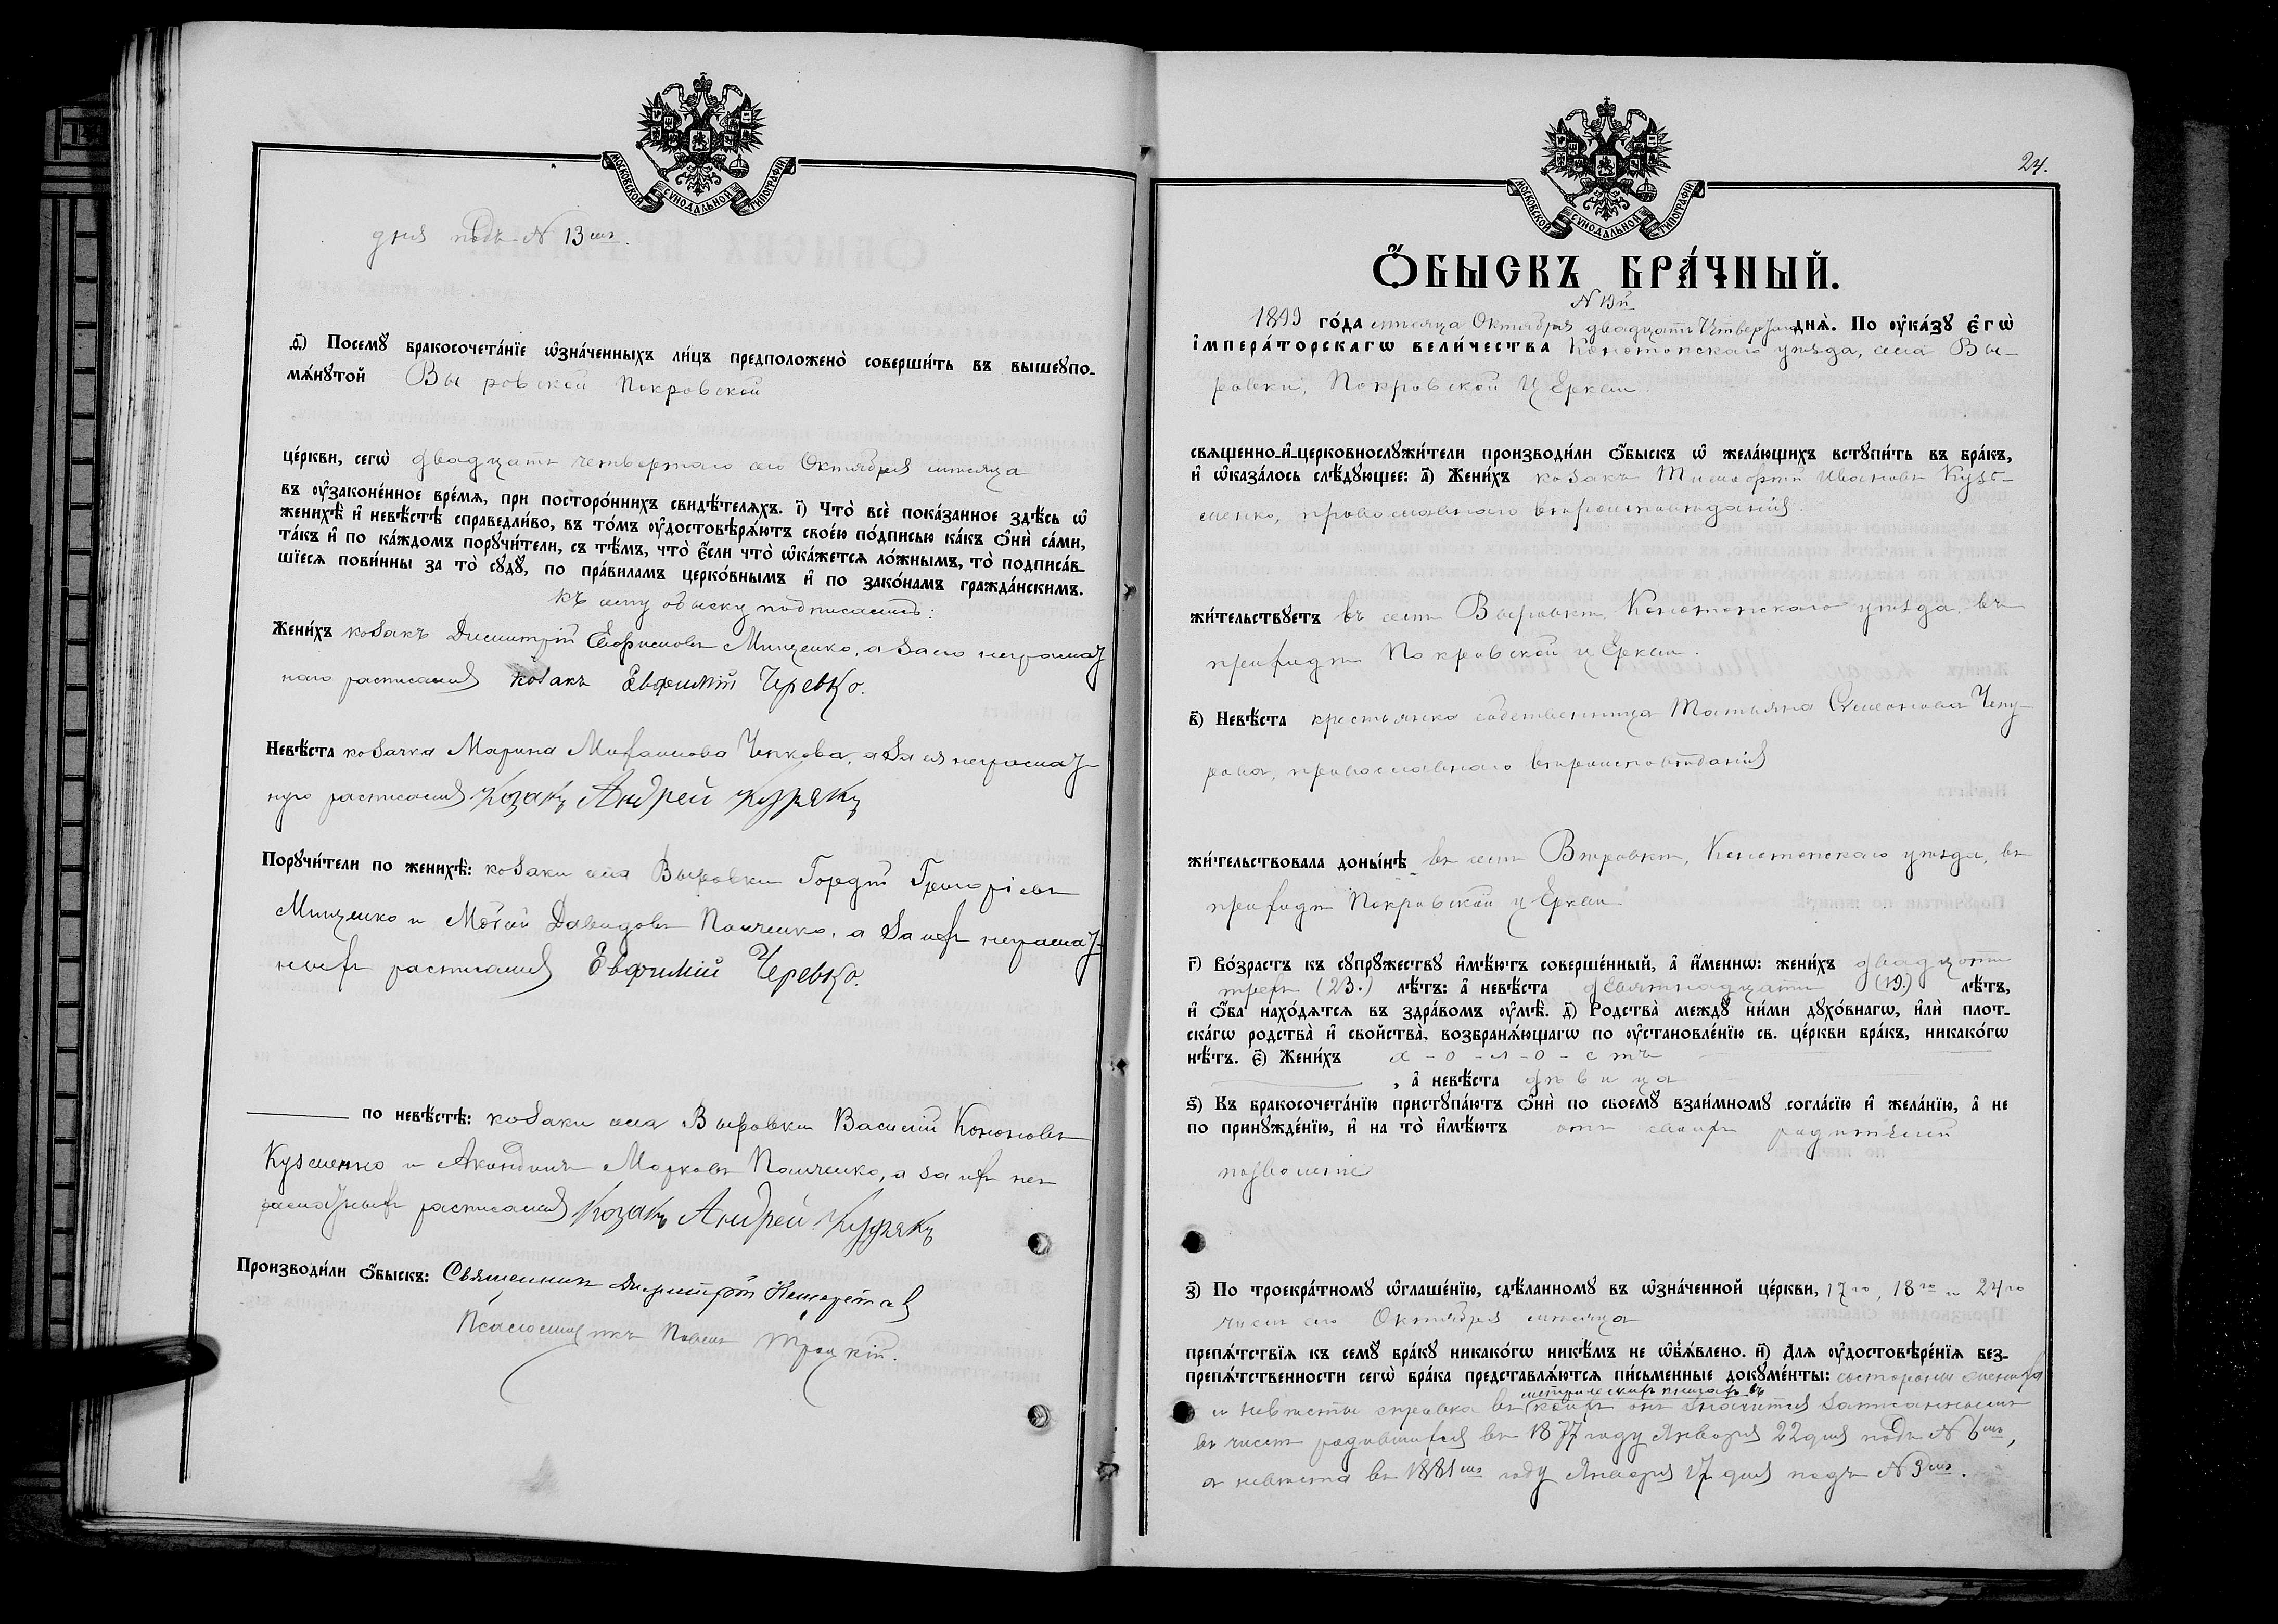 МОСКОВСКОЙ СѴНОДАЛЬНОЙ ТИПОГРАФІИ
дня подъ N 13мъ.
ѳ҃) Посемꙋ бракосочета́нїе ѡ҆зна́ченныхъ ли́цъ предположено̀ соверши́ть въ вышеꙋпо-
мѧ́нꙋтой Выровской Покровской
це́ркви, сегѡ̀ двадцать четвертаго сего Октября мѣсяца
въ ᲂу҆законе́нное вре́мѧ, при посторо́ннихъ свидѣ́телѧхъ. і҃) Что̀ всѐ пока́занное здѣ́сь ѡ҆
женихѣ̀ и҆ невѣ́стѣ справедли́во, въ то́мъ ᲂу҆достовѣрѧ́ютъ свое́ю по́дписью ка́къ ѻ҆нѝ са́ми,
та́къ и҆ по ка́ждомъ порꙋчи́тели, съ тѣ́мъ, что̀ є҆́сли что̀ ѡ҆ка́жетсѧ ло́жнымъ, то̀ подписа́в-
шїесѧ пови́нны за то̀ сꙋдꙋ̀, по пра́виламъ церко́внымъ и҆ по зако́намъ гражда́нскимъ.
Къ сему обыску подписались:
Жени́хъ козакъ Димитрій Мищенко, а за его неграмат-
наго расписался козакъ Евфимій Черевко.
Невѣ́ста козачка Марина Чепкова, а за ея неграмат-
ную расписался Козакъ Андрей Курякъ
Порꙋчи́тели по женихѣ̀: козаки села Выровки Гордій Григоріевъ
Мищенко и Давидовъ Панченко, а за ихъ неграмат-
ныхъ расписался Евфимій Черевко.
по невѣ́стѣ: козаки села Выровки Василій Кононовъ
Кузменко и Марковъ Панченко, а за ихъ не-
граматныхъ расписался Козакъ Андрей Курякъ
Производи́ли ѻ҆́быскъ: Священникъ Димитрій
Псаломщикъ Павелъ Троцкій.
24.
МОСКОВСКОЙ СѴНОДАЛЬНОЙ ТИПОГРАФІИ
Ѻ҆́БЫСКЪ БРА́ЧНЫЙ.
N 13й
1899 го́да мѣсяца Октября двадцать четвертаго днѧ̀. По ᲂу҆ка́зꙋ є҆гѡ̀
і҆мпера́торскагѡ вели́чества Конотопскаго уѣзда, села Вы-
ровки, Покровской Церкви
свѧщенно-и҆-церковнослꙋжи́тели производи́ли ѻ҆́быскъ ѡ҆ жела́ющихъ встꙋпи́ть въ бра́къ,
и҆ ѡ҆каза́лось слѣ́дꙋющее: а҃) Жени́хъ козакъ Тимофей Ивановъ Куз-
менко, православнаго вѣроисповѣданія.
жи́тельствꙋетъ въ селѣ Выровкѣ, Конотопскаго уѣзда, въ
приходѣ Покровской церкви.
в҃) Невѣ́ста крестьянка собственница Татьяна Симеонова Чепу-
рова, православнаго вѣроисповѣданія
жи́тельствовала доны́нѣ въ селѣ Выровкѣ, Конотопскаго уѣзда, въ
приходѣ Покровской церкви
г҃) Во́зрастъ къ сꙋпрꙋ́жествꙋ и҆мѣ́ютъ соверше́нный, а҆ и҆́меннѡ: жени́хъ двадцати
трехъ (23.) лѣ́тъ: а҆ невѣ́ста девятнадцати (19.) лѣ́тъ,
и҆ ѻ҆́ба нахо́дѧтсѧ въ здра́вомъ ᲂу҆мѣ̀. д҃) Родства̀ междꙋ̀ ни́ми дꙋхо́внагѡ, и҆лѝ плот-
ска́гѡ родства̀ и҆ сво́йства̀, возбранѧ́ющагѡ по ᲂу҆становле́нїю св. це́ркви бра́къ, никако́гѡ
нѣ́тъ. є҃) Жени́хъ х-о-л-о-стъ
, а҆ невѣ́ста дѣвица
ѕ҃) Къ бракосочета́нїю пристꙋпа́ютъ ѻ҆нѝ по своемꙋ̀ взаи́мномꙋ согла́сїю и҆ жела́нїю, а҆ не
по принꙋжде́нїю, и҆ на то̀ и҆мѣ́ютъ отъ своихъ родителей
позволеніе
з҃) По троекра́тномꙋ ѡ҆глаше́нїю, сдѣ́ланномꙋ въ ѡ҆зна́ченной це́ркви, 17го, 18го и 24го
чиселъ сего Октября мѣсяца
препѧ́тствїѧ къ семꙋ̀ бра́кꙋ никако́гѡ никѣ́мъ не ѡ҆бъѧ́влено. и҃) Длѧ ᲂу҆достовѣре́нїѧ без-
препѧ́тственности сегѡ̀ бра́ка представлѧ́ютсѧ пи́сьменные докꙋме́нты: со стороны жениха
метрическихъ книгахъ въ
и невѣсты справка въ коихъ онъ значится записаннымъ
въ числѣ родившихся въ 1877 году Января 22 дня подъ N 6мъ,
а невѣста въ 1881мъ году Января 17 дня подъ N 3мъ.